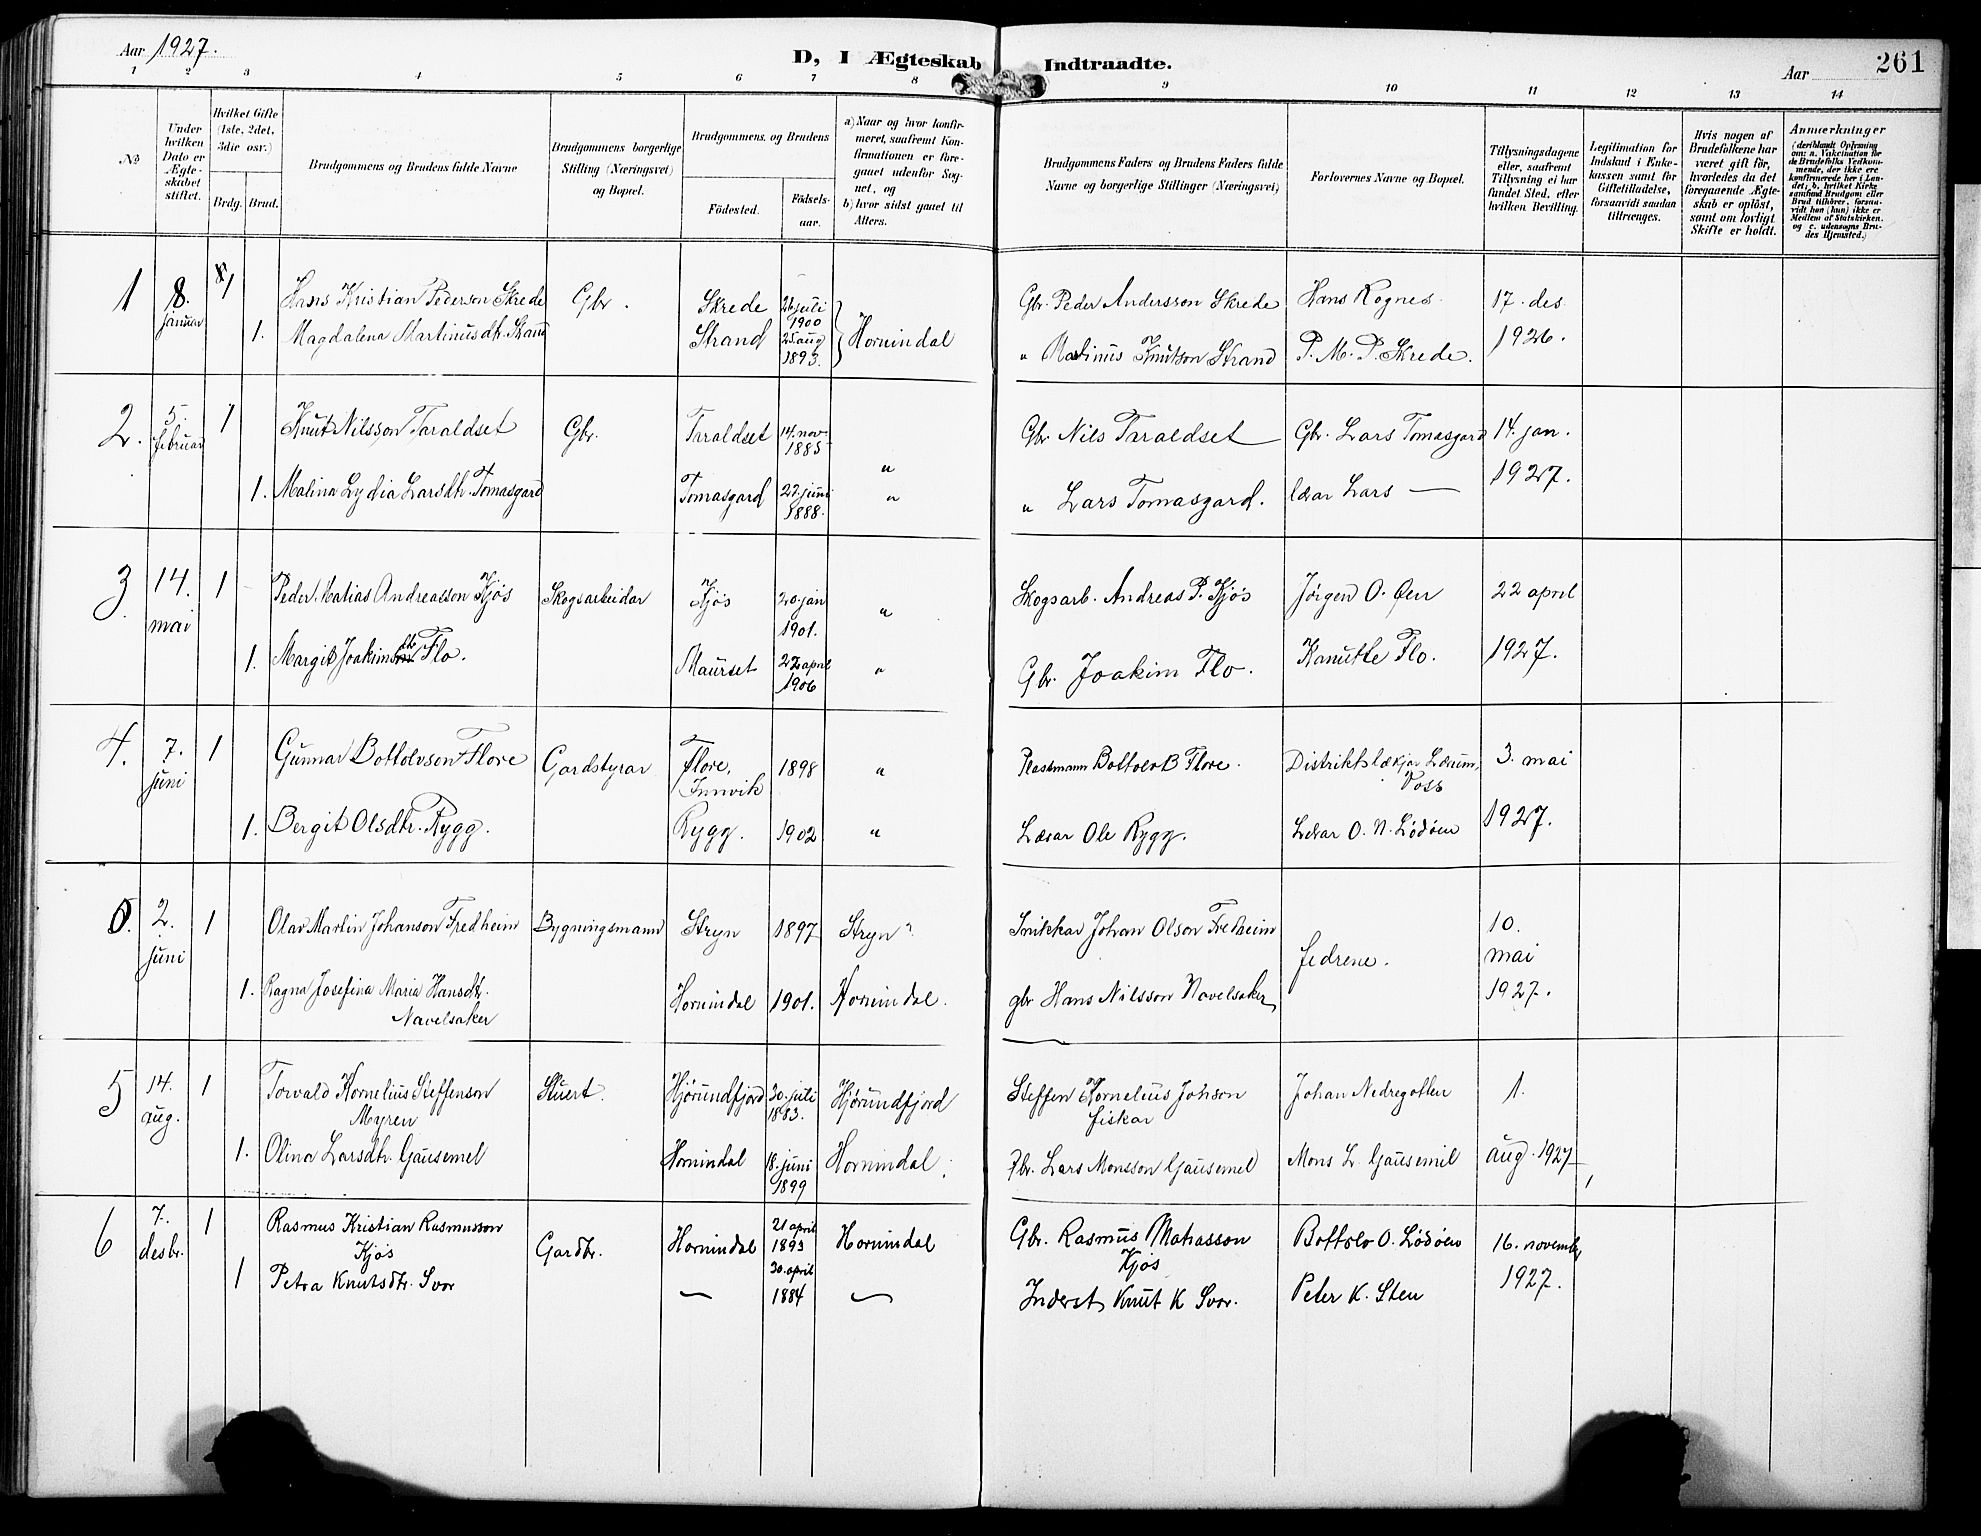 Aar 1927.
D, I Ægteskab Indtraadte.
Aar
261
1 2 3 4 5 6 7 8 9 10 11 12 13 14
No
Under hvilken Dato er Ægteskabet stiftet.
Hvilket Gifte (1ste, 2det, 3die osv.)
Brdg. Brud.
Brudgommens og Brudens fulde Navne
Brudgommens borgerlige Stilling (Næringsvei) og Bopæl.
Brudgommens og Brudens
Fødested.
Fødselsaar.
a) Naar og hvor konfirmeret, saafremt Konfirmationen er foregaaet udenfor Sognet, og
b) hvor sidst gaaet til Alters.
Brudgommens Faders og Brudens Faders fulde Navne og borgerlige Stillinger (Næringsvei)
Forlovernes Navne og Bopæl.
Tillysningsdagene eller, saafremt Tillysning ei har fundet Sted, efter hvilken Bevilling.
Legitimation for Indskud i Enkekassen samt for Giftetilladelse, forsaavidt saadan tiltrænges.
Hvis nogen af Brudefolkene har været gift før, hvorledes da det foregaaende Ægteskab er opløst, samt om lovligt Skifte er holdt.
Anmærkninger (deriblandt Oplysning om: a. Vakcination for de Brudefolks Vedkommende, der ikke ere konfirmerede her i Landet; b. hvilket Kirkesamfund Brudgom eller Brud tilhører, forsaavidt han (hun) ikke er Medlem af Statskirken. og c. udensogns Brudes Hjemsted.)
1 8. januar 1 Hans Kristian Pederson Skrede Gbr. Skrede 26 juli 1900 Gbr. Peder Andersson Skrede Hans Rognes 17. des
1. Magdalena Martinusdtr. Strand Strand 25 aug 1893. Hornindal " Martinus Knutson Strand P. M. P. Skrede. 1926.
2. 5. februar 1 Knut Nilsson Taraldset Gbr. Taraldset 14. nov. 1885 " Gbr Nils Taraldset Gbr. Lars Tomasgard 14. jan.
1. Malina Lydia Larsdtr. Tomasgard Tomasgard 22 juni 1888. " " Lars Tomasgard. Lars — 1927.
3. 14. mai 1 Peder Matias Andreasson Kjøs Skogsarbeidar Kjøs 20. jan 1901. " Skogsarb. Andreas P. Kjøs Jørgen O. Øen 22 april
1. Margit Joakimsdtr Flo. Maurset 22 april 1906 " Gbr. Joakim Flo. Kanutte Flo. 1927.
4. 7. juni 1 Gunnar Bottolvson Flore Gardstyrar Flore, Innvik 1898 " Plassmann Bottolv B Flore. Distriktslækjar Lærum, Voss 3. mai
1. Bergit Olsdtr. Rygg. Rygg. 1902 " Lærar Ole Rygg. Lærar O. N. Lødøen 1927.
5. 2. juni 1 Olav Martin Johanson Fredheim Bygningsmann Stryn 1897 Stryn Snikkar Johan Olson Fredheim fedrene. 10. mai
1. Ragna Josefina Maria Hansdtr. Navelsaker Hornindal 1901. Hornindal. gbr Hans Nilsson Navelsaker 1927.
5 14. aug. 1 Torvald Kornelius Steffenson Myren Stuert. Hjørundfjord 30. juli 1883. Hjørundfjord Steffen Kornelius Johson fiskar Johan Nedregotten 1.
1. Olina Larsdtr. Gausemel Hornindal 18. juni 1899 Hornindal. Gbr. Lars Monsson Gausemel Mons L. Gausemel aug. 1927
6 7. desbr. 1 Rasmus Kristian Rasmusson Kjøs Gardbr. Hornindal 21 april 1893 Hornindal Gbr. Rasmus Matiasson Kjøs Bottolv O. Lødøen 16. novembr
1 Petra Knutsdtr. Svor — 30. april 1884 — Inderst Knut K Svor. Peter K. Sten 1927.